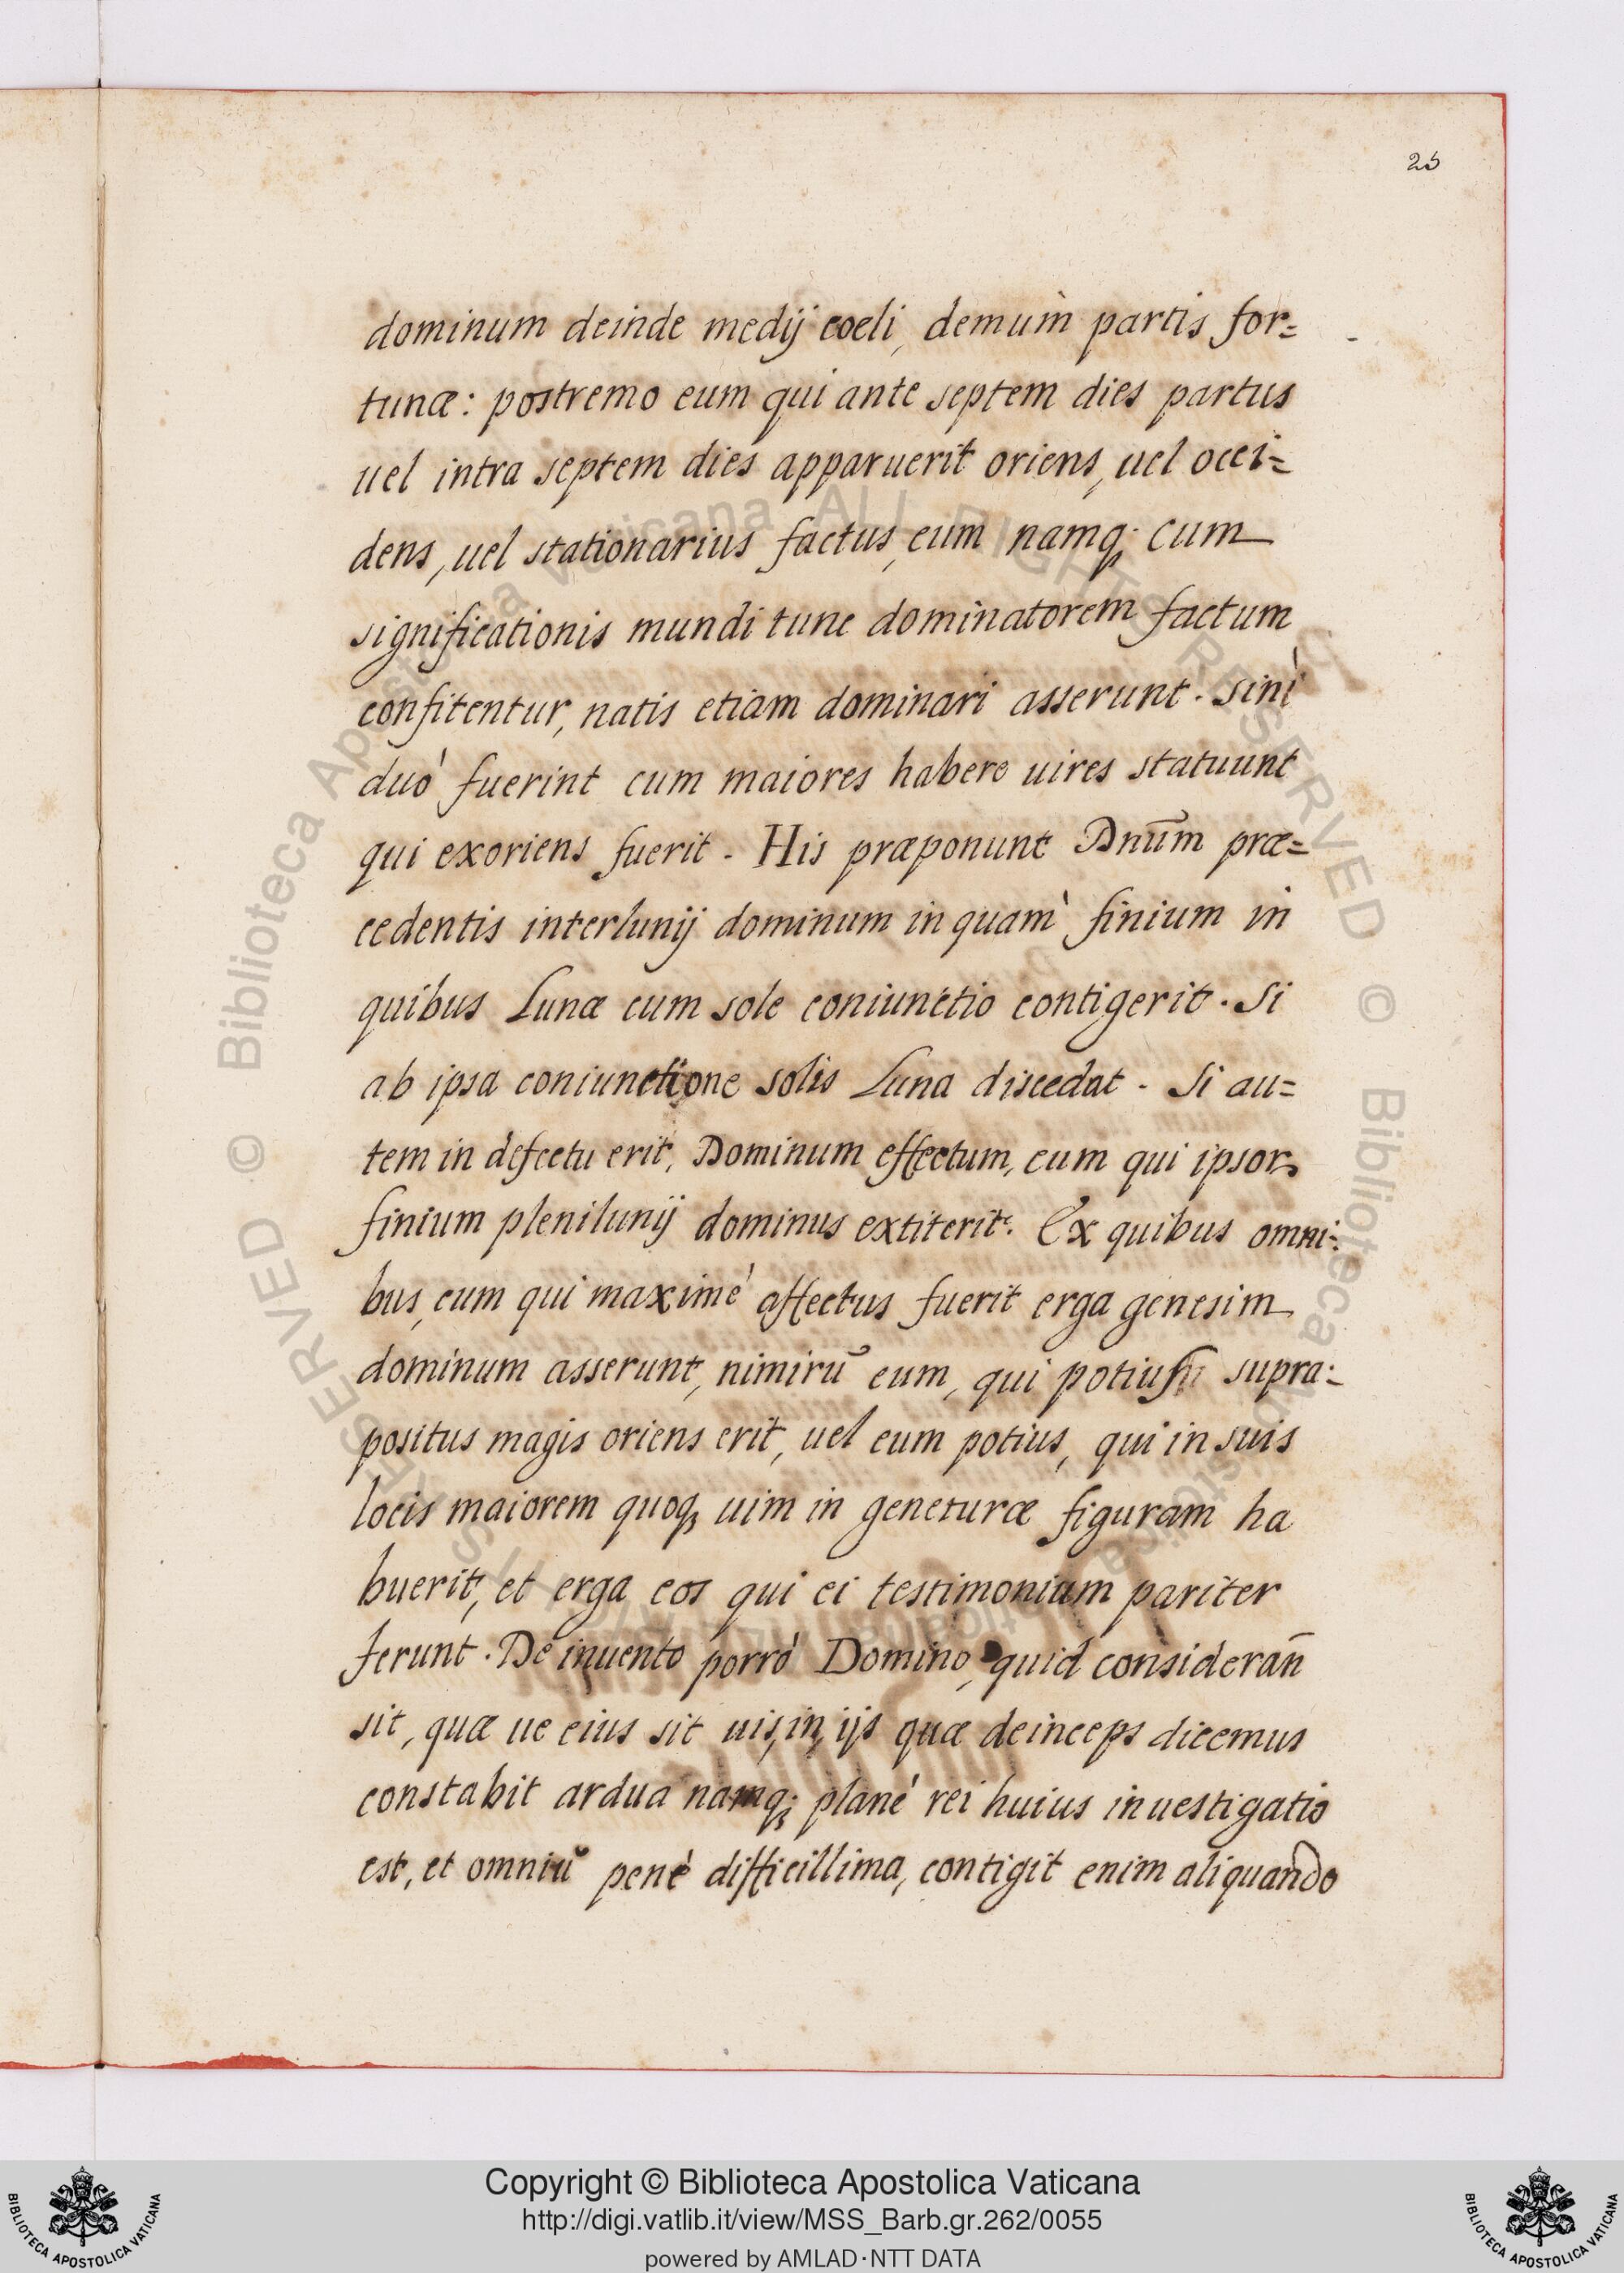 25
dominum deinde medij coeli, demum̀ partis for=
tunæ: postremo eum qui ante septem dies partus
uel intra septem dies apparuerit oriens, uel occi=
dens, uel stationarius factus, eum namq; cum
significationis mundi tunc dominatorem factum
confitentur, natis etiam dominari asserunt. sinì
duò fuerint cum maiores habere uires statuunt
qui exoriens fuerit. His præponunt Dnūm præ=
cedentis interlunij dominum in quam̀ finium in
quibus Lunæ cum sole coniunctio contigerit. Si
ab ipsa coniunctione solis Luna discedat. Si au=
tem in defectu erit, Dominum effectum, eum qui ipsoꝝ
finium plenilunij dominus extiterit. Ex quibus omni=
bus, eum qui maximè affectus fuerit erga genesim
dominum asserunt, nimirū eum, qui supra=
positus magis oriens erit, uel eum potius, qui in suis
locis maiorem quoq; uim in geneturæ figuram ha
buerit, et erga eos qui ei testimonium pariter
ferunt. De inuento porrò Domino, quid considerañ
sit, quæ ue eius sit uis, in ijs quæ deinceps dicemus
constabit ardua namq; planè rei huius inuestigatio
est, et omniū penè difficillima, contigit enim aliquando
Copyright © Biblioteca Apostolica Vaticana
http://digi.vatlib.it/view/MSS_Barb.gr.262/0055
powered by AMLAD·NTT DATA
BIBLIOTECA APOSTOLICA VATICANA
BIBLIOTECA APOSTOLICA VATICANA